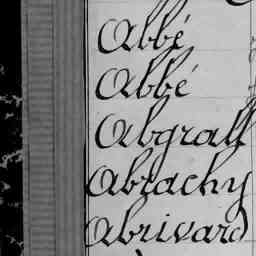 Abbé
Abbé
Abgrall
Abrachy
Abrivard